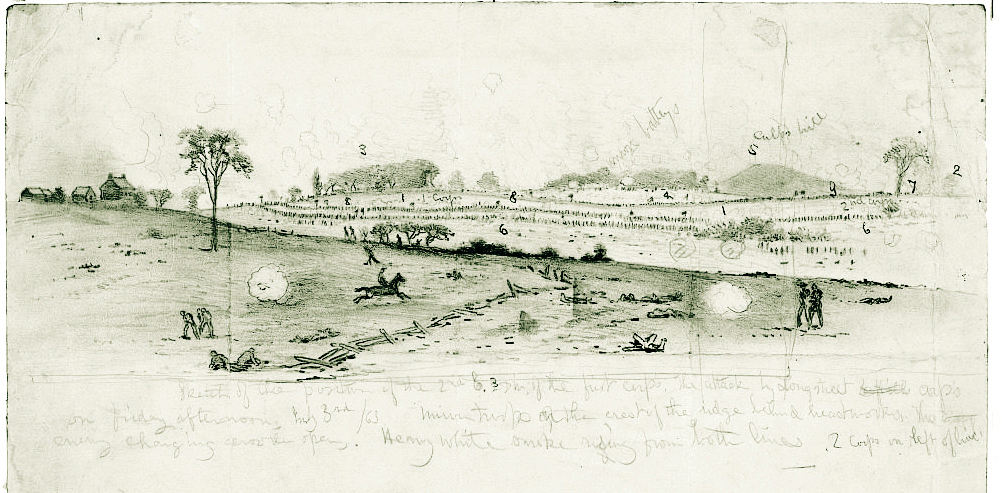 batterys
Culps hill
3 5
7 2
8 1 Corps 8 4 9
1 2nd Corps
6 6
Sketch of the position of the 2nd & 3 div. of the first corps. The attack by Longstreet corps
on Friday afternoon, July 3rd /63. our troops at the crest of the ridge behind breastworks. The
enemy charging across the open. Heavy white smoke rising from both lines 2 Corps on left of line